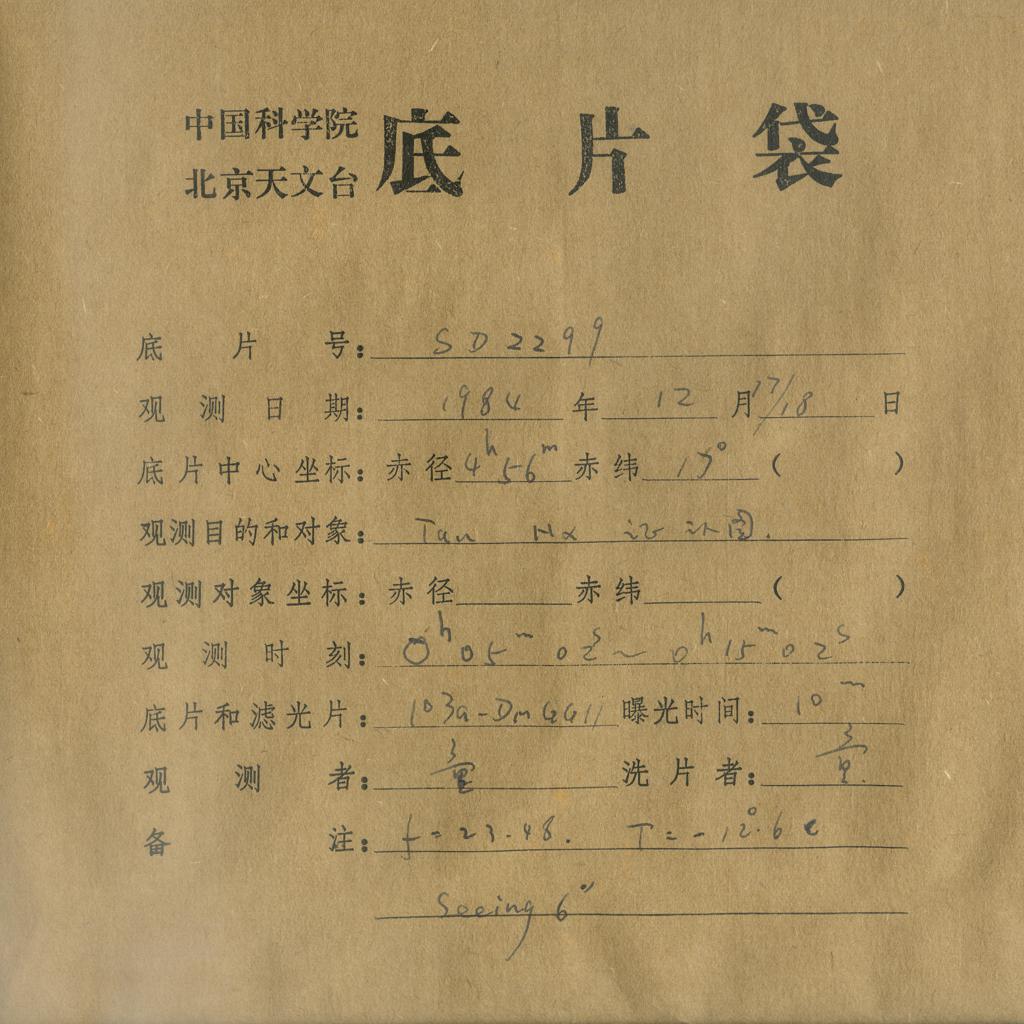 中国科学院
北京天文台
底片袋
底片号：SD2299
观测日期：1984年12月17/18日
底片中心坐标：赤径4ʰ56ᵐ赤纬17°（ ）
观测目的和对象：Tau Hα 证认图.
观测对象坐标：赤径 赤纬 （ ）
观测时刻：0ʰ05ᵐ02ˢ～0ʰ15ᵐ02ˢ
底片和滤光片：103a-D GG11 曝光时间：10ᵐ
观测者： 洗片者：
备注：f=23.48. T=-12°.6c
Seeing 6"